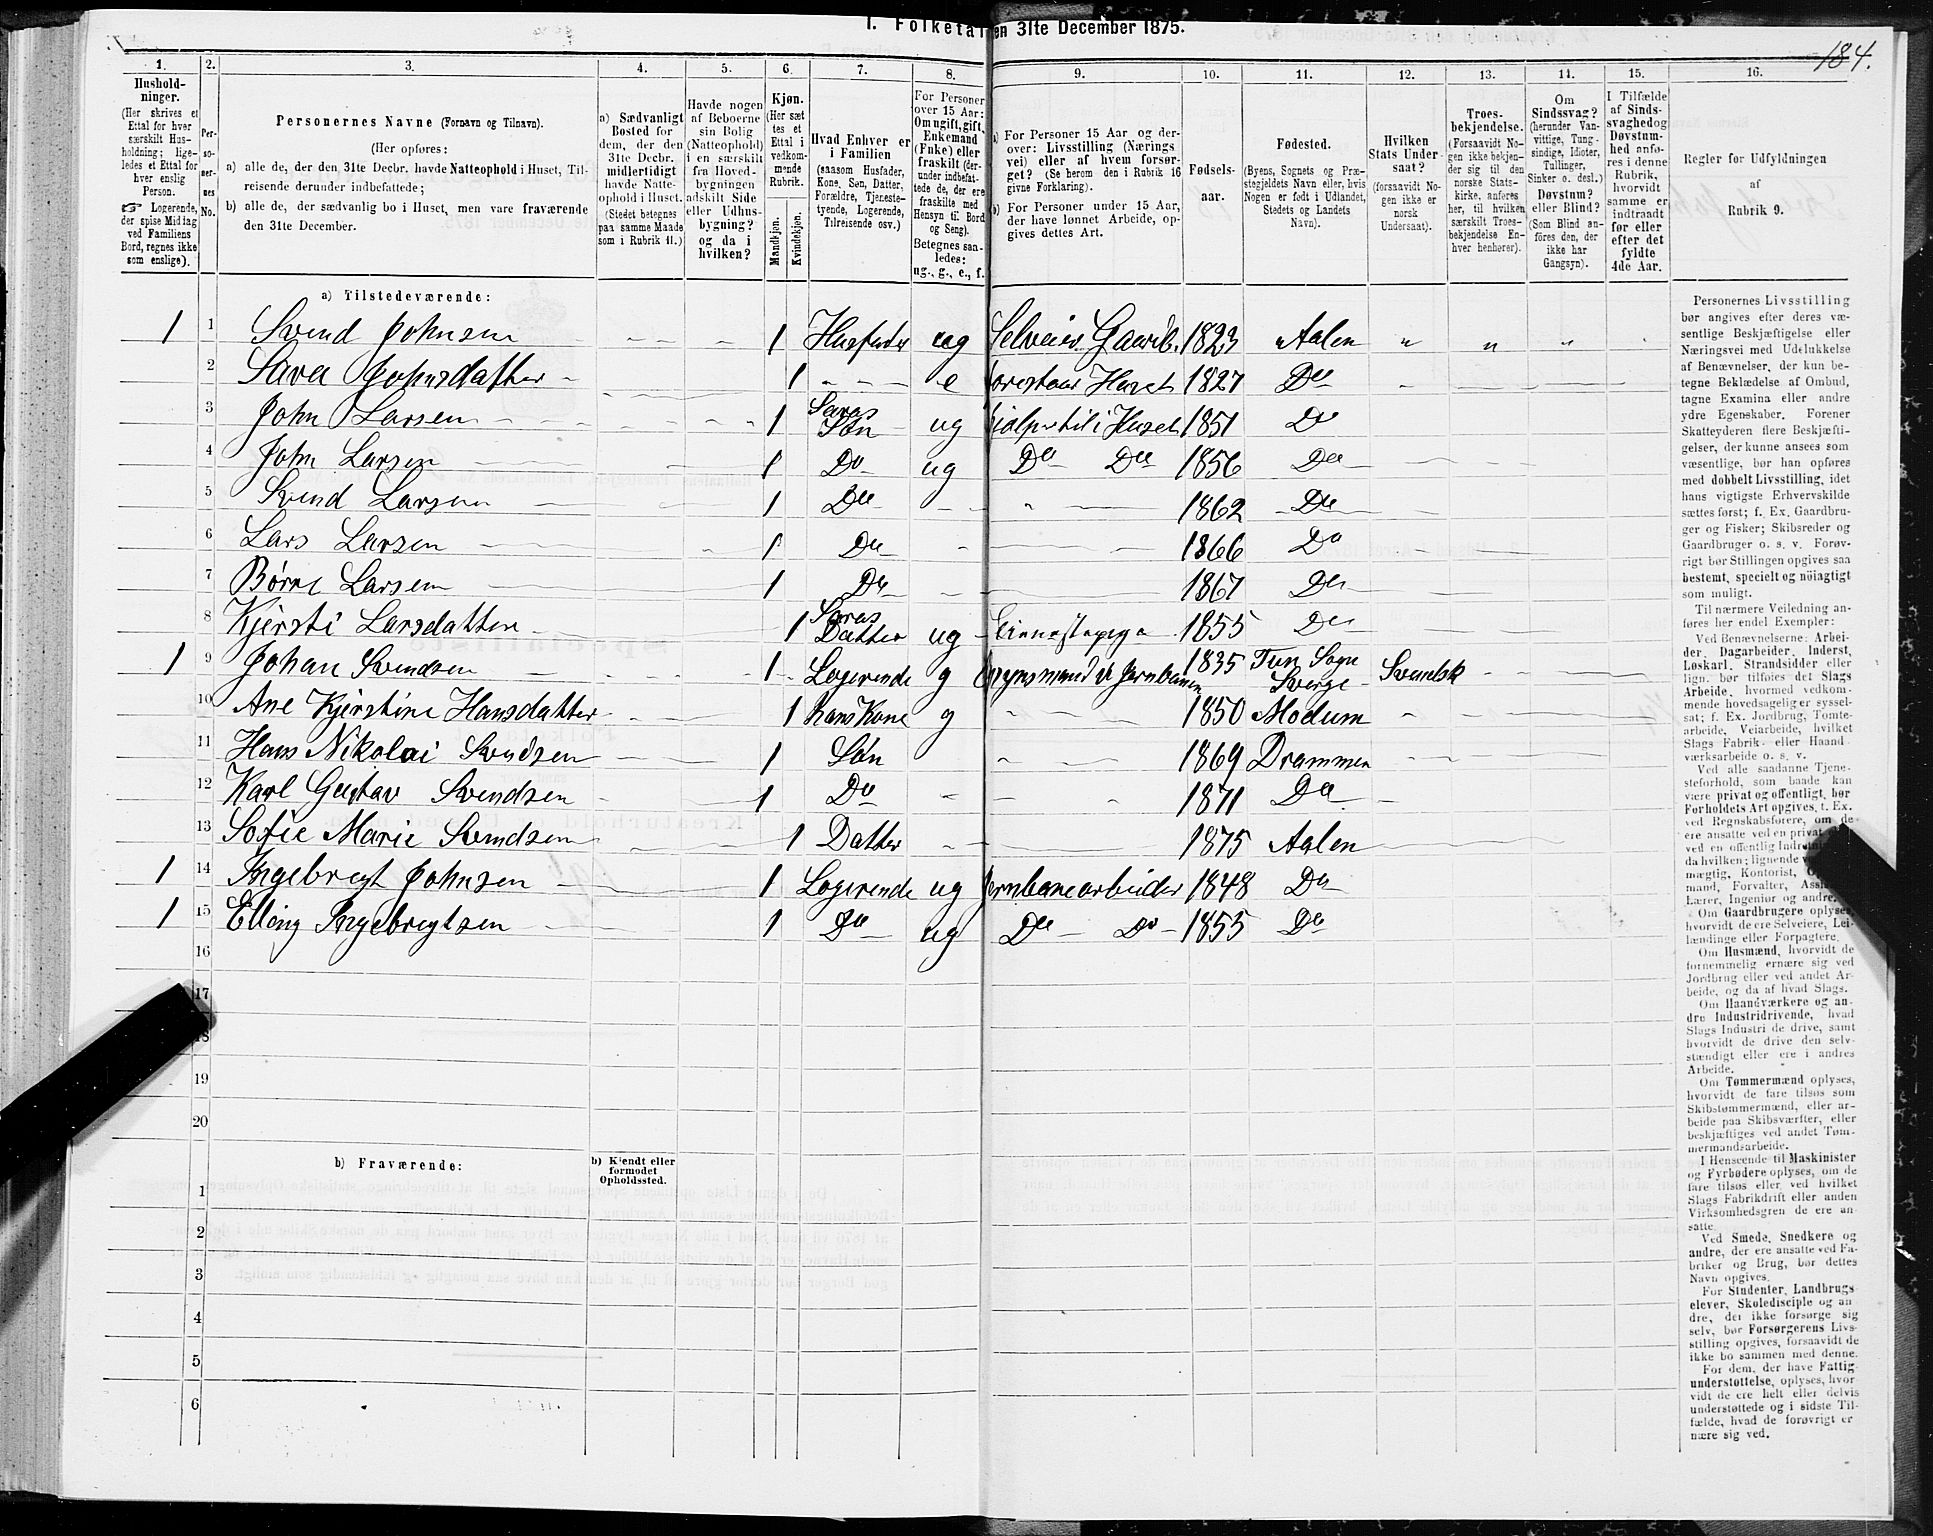 184.
I. Folketal den 31te December 1875.
1. 2. 3. 4. 5. 6. 7. 8. 9. 10. 11. 12. 13. 14. 15. 16.
Hushold-
ninger.
(Her skrives et
Ettal for hver
særskilt Hus-
holdning; lige-
ledes et Ettal for
hver enslig
Person.
☞ Logerende,
der spise Middag
ved Familiens
Bord, regnes ikke
som enslige).
Per-
so-
ner-
nes
No.
Personernes Navne (Fornavn og Tilnavn).
(Her opføres:
a) alle de, der den 31te Decbr. havde Natteophold i Huset, Til-
reisende derunder indbefattede;
b) alle de, der sædvanlig bo i Huset, men vare fraværende
den 31te December.
a) Sædvanligt
Bosted for
dem, der den
31te Decbr.
midlertidigt
havde Natte-
ophold i Huset.
(Stedet betegnes
paa samme Maade
som i Rubrik 11.)
Havde nogen
af Beboerne
sin Bolig
(Natteophold)
i en særskilt
fra Hoved-
bygningen
adskilt Side
eller Udhus-
bygning?
og da i
hvilken?
Kjøn.
(Her sæt
tes et
Ettal i
vedkom-
mende
Rubrik.
Mandkjøn.
Kvindekjøn.
Hvad Enhver er
i Familien
(saasom Husfader,
Kone, Søn, Datter,
Forældre, Tjeneste-
tyende, Logerende,
Tilreisende osv.)
For Personer
over 15 Aar:
Om ugift, gift,
Enkemand
(Enke) eller
fraskilt (der-
under indbefat-
tede de, der ere
fraskilte med
Hensyn til Bord
og Seng).
Betegnes saa-
ledes:
ug., g., e., f.
a) For Personer 15 Aar og der-
over: Livsstilling (Nærings
vei) eller af hvem forsør-
get? (Se herom den i Rubrik 16
givne Forklaring).
b) For Personer under 15 Aar,
der have lønnet Arbeide, op-
gives dettes Art.
Fødsels-
aar.
Fødested.
(Byens, Sognets og Præ-
stegjeldets Navn eller, hvis
Nogen er født i Udlandet,
Stedets og Landets
Navn).
Hvilken
Stats Under-
saat?
(forsaavidt No-
gen ikke er
norsk
Undersaat).
Troes-
bekjendelse.
(Forsaavidt No-
gen ikke bekjen-
der sig til den
norske Stats-
kirke, anføres
her, til hvilken
særskilt Troes-
bekjendelse En-
hver henhører).
Om
Sindssvag?
(herunder Van-
vittige, Tung-
sindige, Idioter,
Tullinger,
Sinker o. desl.)
Døvstum?
eller Blind?
(Som Blind an-
føres den, der
ikke har
Gangsyn).
I Tilfælde
af Sinds-
svaghed og
Døvstum-
hed anfø-
res i denne
Rubrik,
hvorvidt
samme er
indtraadt
før eller
efter det
fyldte
4de Aar.
Regler for Udfyldningen
af
Rubrik 9.
a) Tilstedeværende:
1 1 Svend Johnsen 1 Husfader ug Selveier Gaardb. 1823 Aalen
2 Sara Johnsdatter 1 e forestaar Huset 1827 Do
3 John Larsen 1 Saras Søn ug hjælper til i Huset 1851 Do
4 John Larsen 1 Do ug Do Do 1856 Do
5 Svend Larsen 1 Do 1862 Do
6 Lars Larsen 1 Do 1866 Do
7 Børre Larsen 1 Do 1867 Do
8 Kjersti Larsdatter 1 Saras Datter ug 1855 Do
1 9 Johan Svendsen 1 Logerende g 1835 Tun Sogn Sverge Svensk
10 Ane Kjerstine Hansdatter 1 hans Kone g 1850 Modum
11 Hans Nikolai Svendsen 1 Søn 1869 Drammen
12 Karl Gustav Svendsen 1 Do 1871 Do
13 Sofie Marie Svendsen 1 Datter 1875 Aalen
1 14 Ingebregt Johnsen 1 Logerende ug Jernbanearbeider 1848 Do
1 15 Elling Ingebregtsen 1 Do ug Do Do 1855 Do
16
17
18
19
20
b) Fraværende:
b) Kjendt eller
formodet
Opholdssted.
1
2
3
4
5
6
Personernes Livsstilling
bør angives efter deres væ-
sentlige Beskjæftigelse eller
Næringsvei med Udelukkelse
af Benævnelser, der kun be-
tegne Beklædelse af Ombud,
tagne Examina eller andre
ydre Egenskaber. Forener
Skatteyderen flere Beskjæfti-
gelser, der kunne ansees som
væsentlige, bør han opføres
med dobbelt Livsstilling, idet
hans vigtigste Erhvervskilde
sættes først; f. Ex. Gaardbru-
ger og Fisker; Skibsreder og
Gaardbruger o. s. v. Forøv-
rigt bør Stillingen opgives saa
bestemt, specielt og nöiagtigt
som muligt.
Til nærmere Veiledning an-
føres her endel Exempler:
Ved Benævnelserne: Arbei-
der, Dagarbeider, Inderst,
Løskarl, Strandsidder eller
lign. bør tilføies det Slags
Arbeide, hvormed vedkom-
mende hovedsagelig er syssel-
sat; f. Ex. Jordbrug, Tomte-
arbeide, Veiarbeide, hvilket
Slags Fabrik- eller Haand-
værksarbeide o. s. v.
Ved alle saadanne Tjene-
steforhold, som baade kan
være privat og offentligt, bør
Forholdets Art opgives, t. Ex.
ved Regnskabsførere, om de
ere ansatte ved en privat
ved en offentlig
da hvilken; lignende
mægtig, Kontorist,
mand, Forvalter,
Lærer, Ingeniør og andre.
Om Gaardbrugere oplyses,
hvorvidt de ere Selveiere, Lei-
lændinge eller Forpagtere.
Om Husmænd, hvorvidt de
fornemmelig ernære sig ved
Jordbrug eller ved andet Ar-
beide, og da af hvad Slags.
Om Haandværkere og an-
dre Industridrivende, hvad
Slags Industri de drive, samt
hvorvidt de drive den selv-
stændigt eller ere i andres
Arbeide.
Om Tømmermænd oplyses,
hvorvidt de fare tilsøs som
Skibstømmermænd, eller ar-
beide paa Skibsværfter, eller
beskjæftiges ved andet Tøm-
mermandsarbeide.
I Henseende til Maskinister
og Fyrbødere oplyses, om de
fare tilsøs eller ved hvilket
Slags Fabrikdrift eller anden
Virksomhedsgren de ere an-
satte.
Ved Smede, Snedkere og
andre, der ere ansatte ved Fa-
briker og Brug, bør dettes
Navn opgives.
For Studenter, Landbrugs-
elever, Skoledisciple og an-
dre, der ikke forsørge sig
selv, bør Forsørgerens Livs-
stilling opgives, forsaavidt de
ikke bo sammen med denne.
For dem, der have Fattig-
understøttelse, oplyses, hvor-
vidt de ere helt eller delvis
understøttede og i sidste Til-
fælde, hvad de forøvrigt er
nære sig ved.